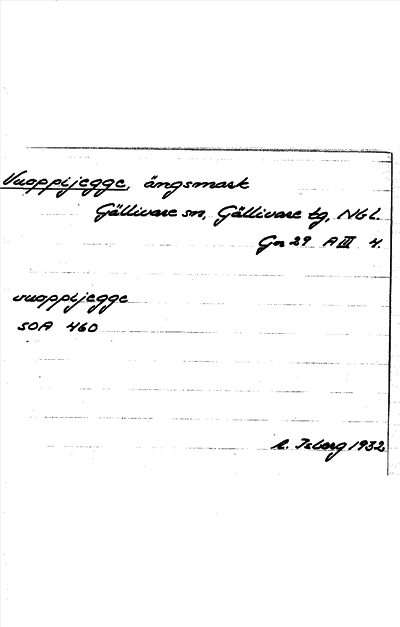 Vuoppijegge, ängsmark
Gällivare sn, Gällivare tg, Nbl.
Gn 29 A III 4.
vuoppijegge
SOA 460
Isberg 1932